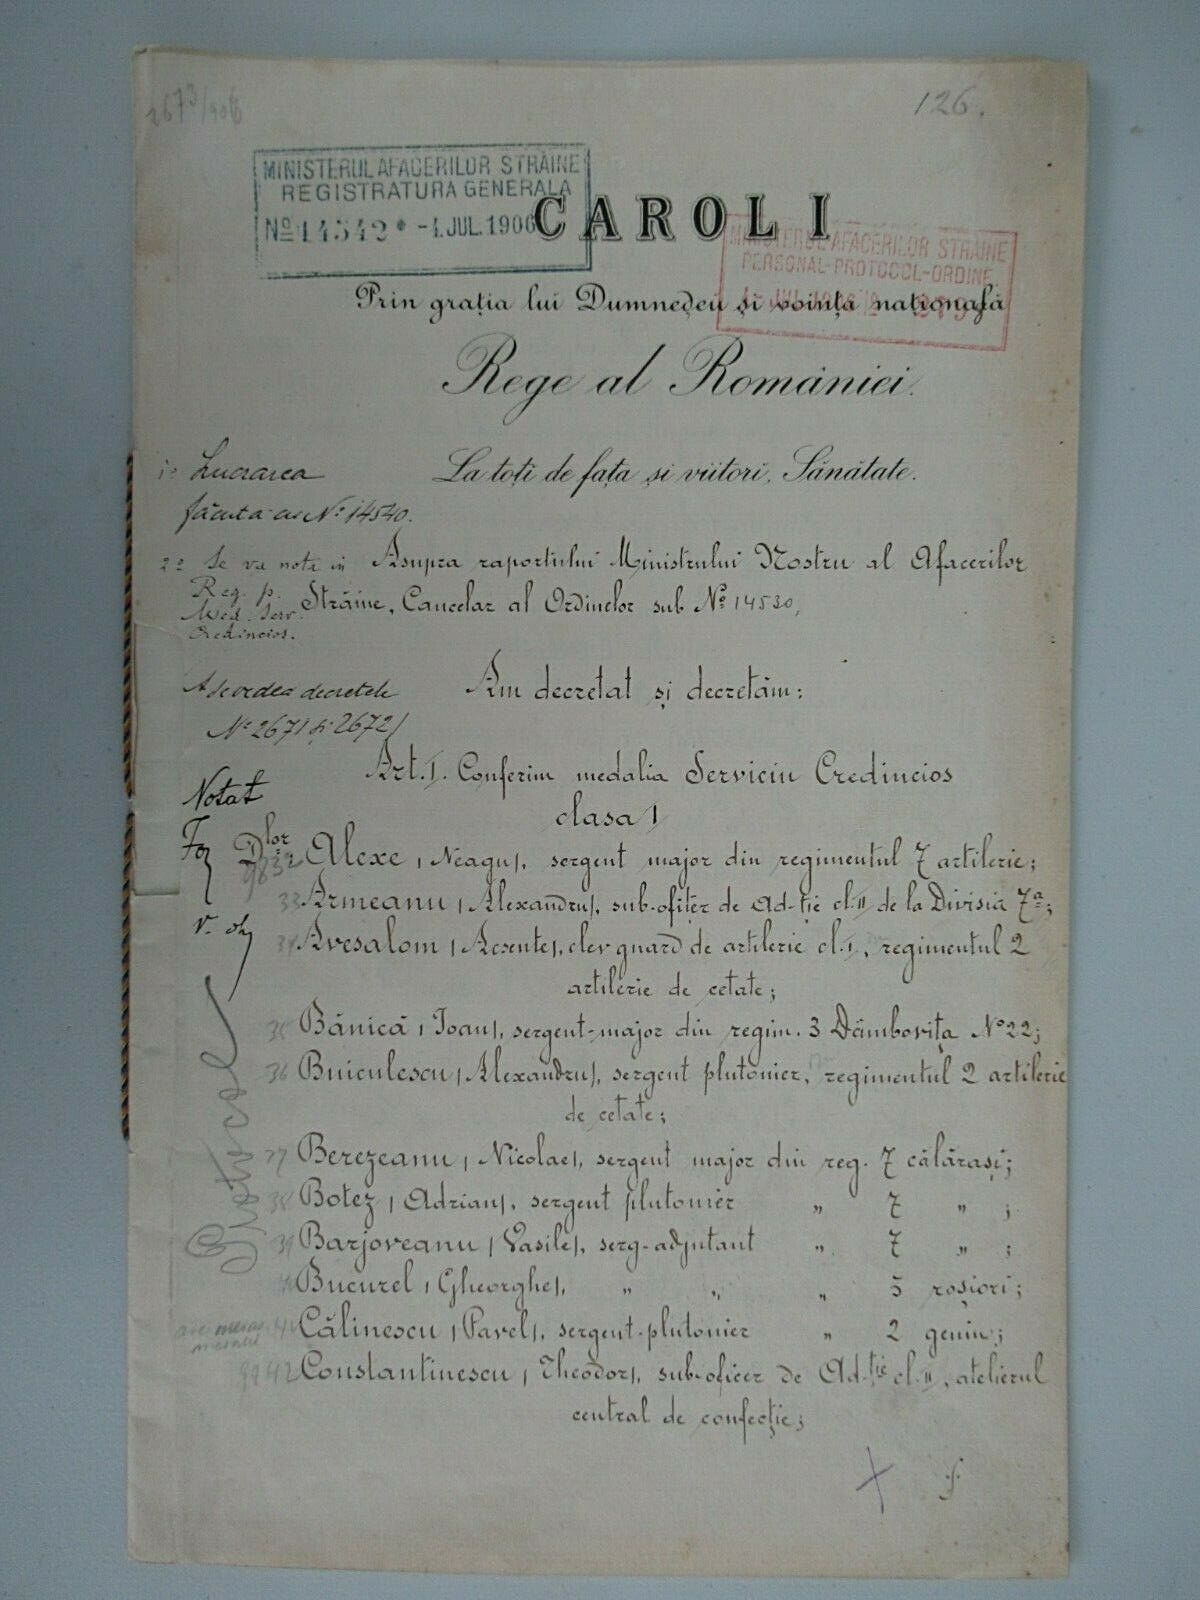 2673/906
126.
MINISTERUL AFACERILOR STRĂINE
REGISTRATURA GENERALA
No 14542 * -4. JUL. 1906
CAROL I
MINISTERUL AFACERILOR STRĂINE
PERSONAL-PROTOCOL-ORDINE
Prin grația lui Dumnedeu și voința națională
Rege al României.
La toți de față și viitori, Sănătate.
1º Lucrarea
făcută cu Nº 14540.
2º Se va nota in
Reg. p.
Med. Serv.
Credincios.
Asupra raportului Ministrului Nostru al Afacerilor
Străine, Cancelar al Ordinelor sub Nº 14530,
A se vedea decretele
Nº 2671 și 2672
Am decretat și decretăm:
Art. I. Conferim medalia Serviciu Credincios
clasa I
Notat
Dlor
9832 Alexe (Neagu), sergent major din regimentul 7 artilerie;
33 Armeanu (Alexandru), sub-ofițer de Ad-ție cl. II de la Divisia 7ª;
34 Avesalom (Acsente), elev guard de artilerie cl. I, regimentul 2
artilerie de cetate;
35 Bănică (Ioan), sergent-major din regim. 3 Dâmbovița Nº 22;
36 Buiculescu (Alexandru), sergent plutonier, regimentul 2 artilerie
de cetate;
37 Berezeanu (Nicolae), sergent major din reg. 7 călărași;
38 Botez (Adrian), sergent plutonier " 7 " ;
39 Barjoveanu (Vasile), serg-adjutant " 7 " ;
Bucurel (Gheorghe), " " " 5 roșiori;
41 Călinescu (Pavel), sergent-plutonier " 2 geniu;
9842 Constantinescu (Theodor), sub-oficer de Ad-ție cl. II, atelierul
central de confecție;
Protocol